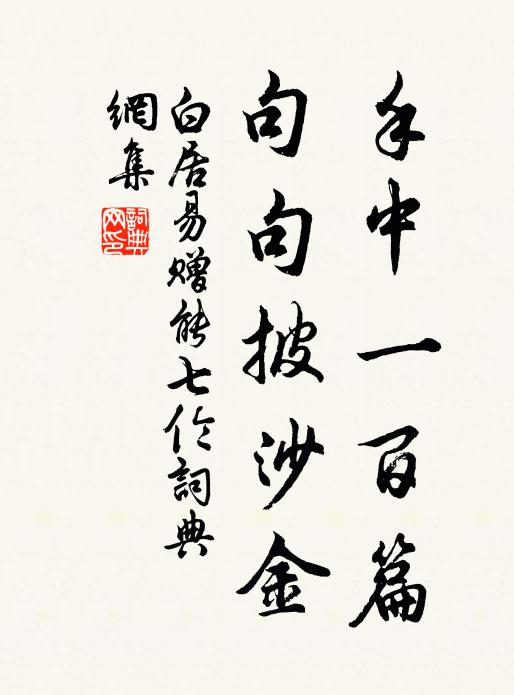 手中一百篇
句句披沙金
白居易赠能七伦詞典
網集
詞典网印